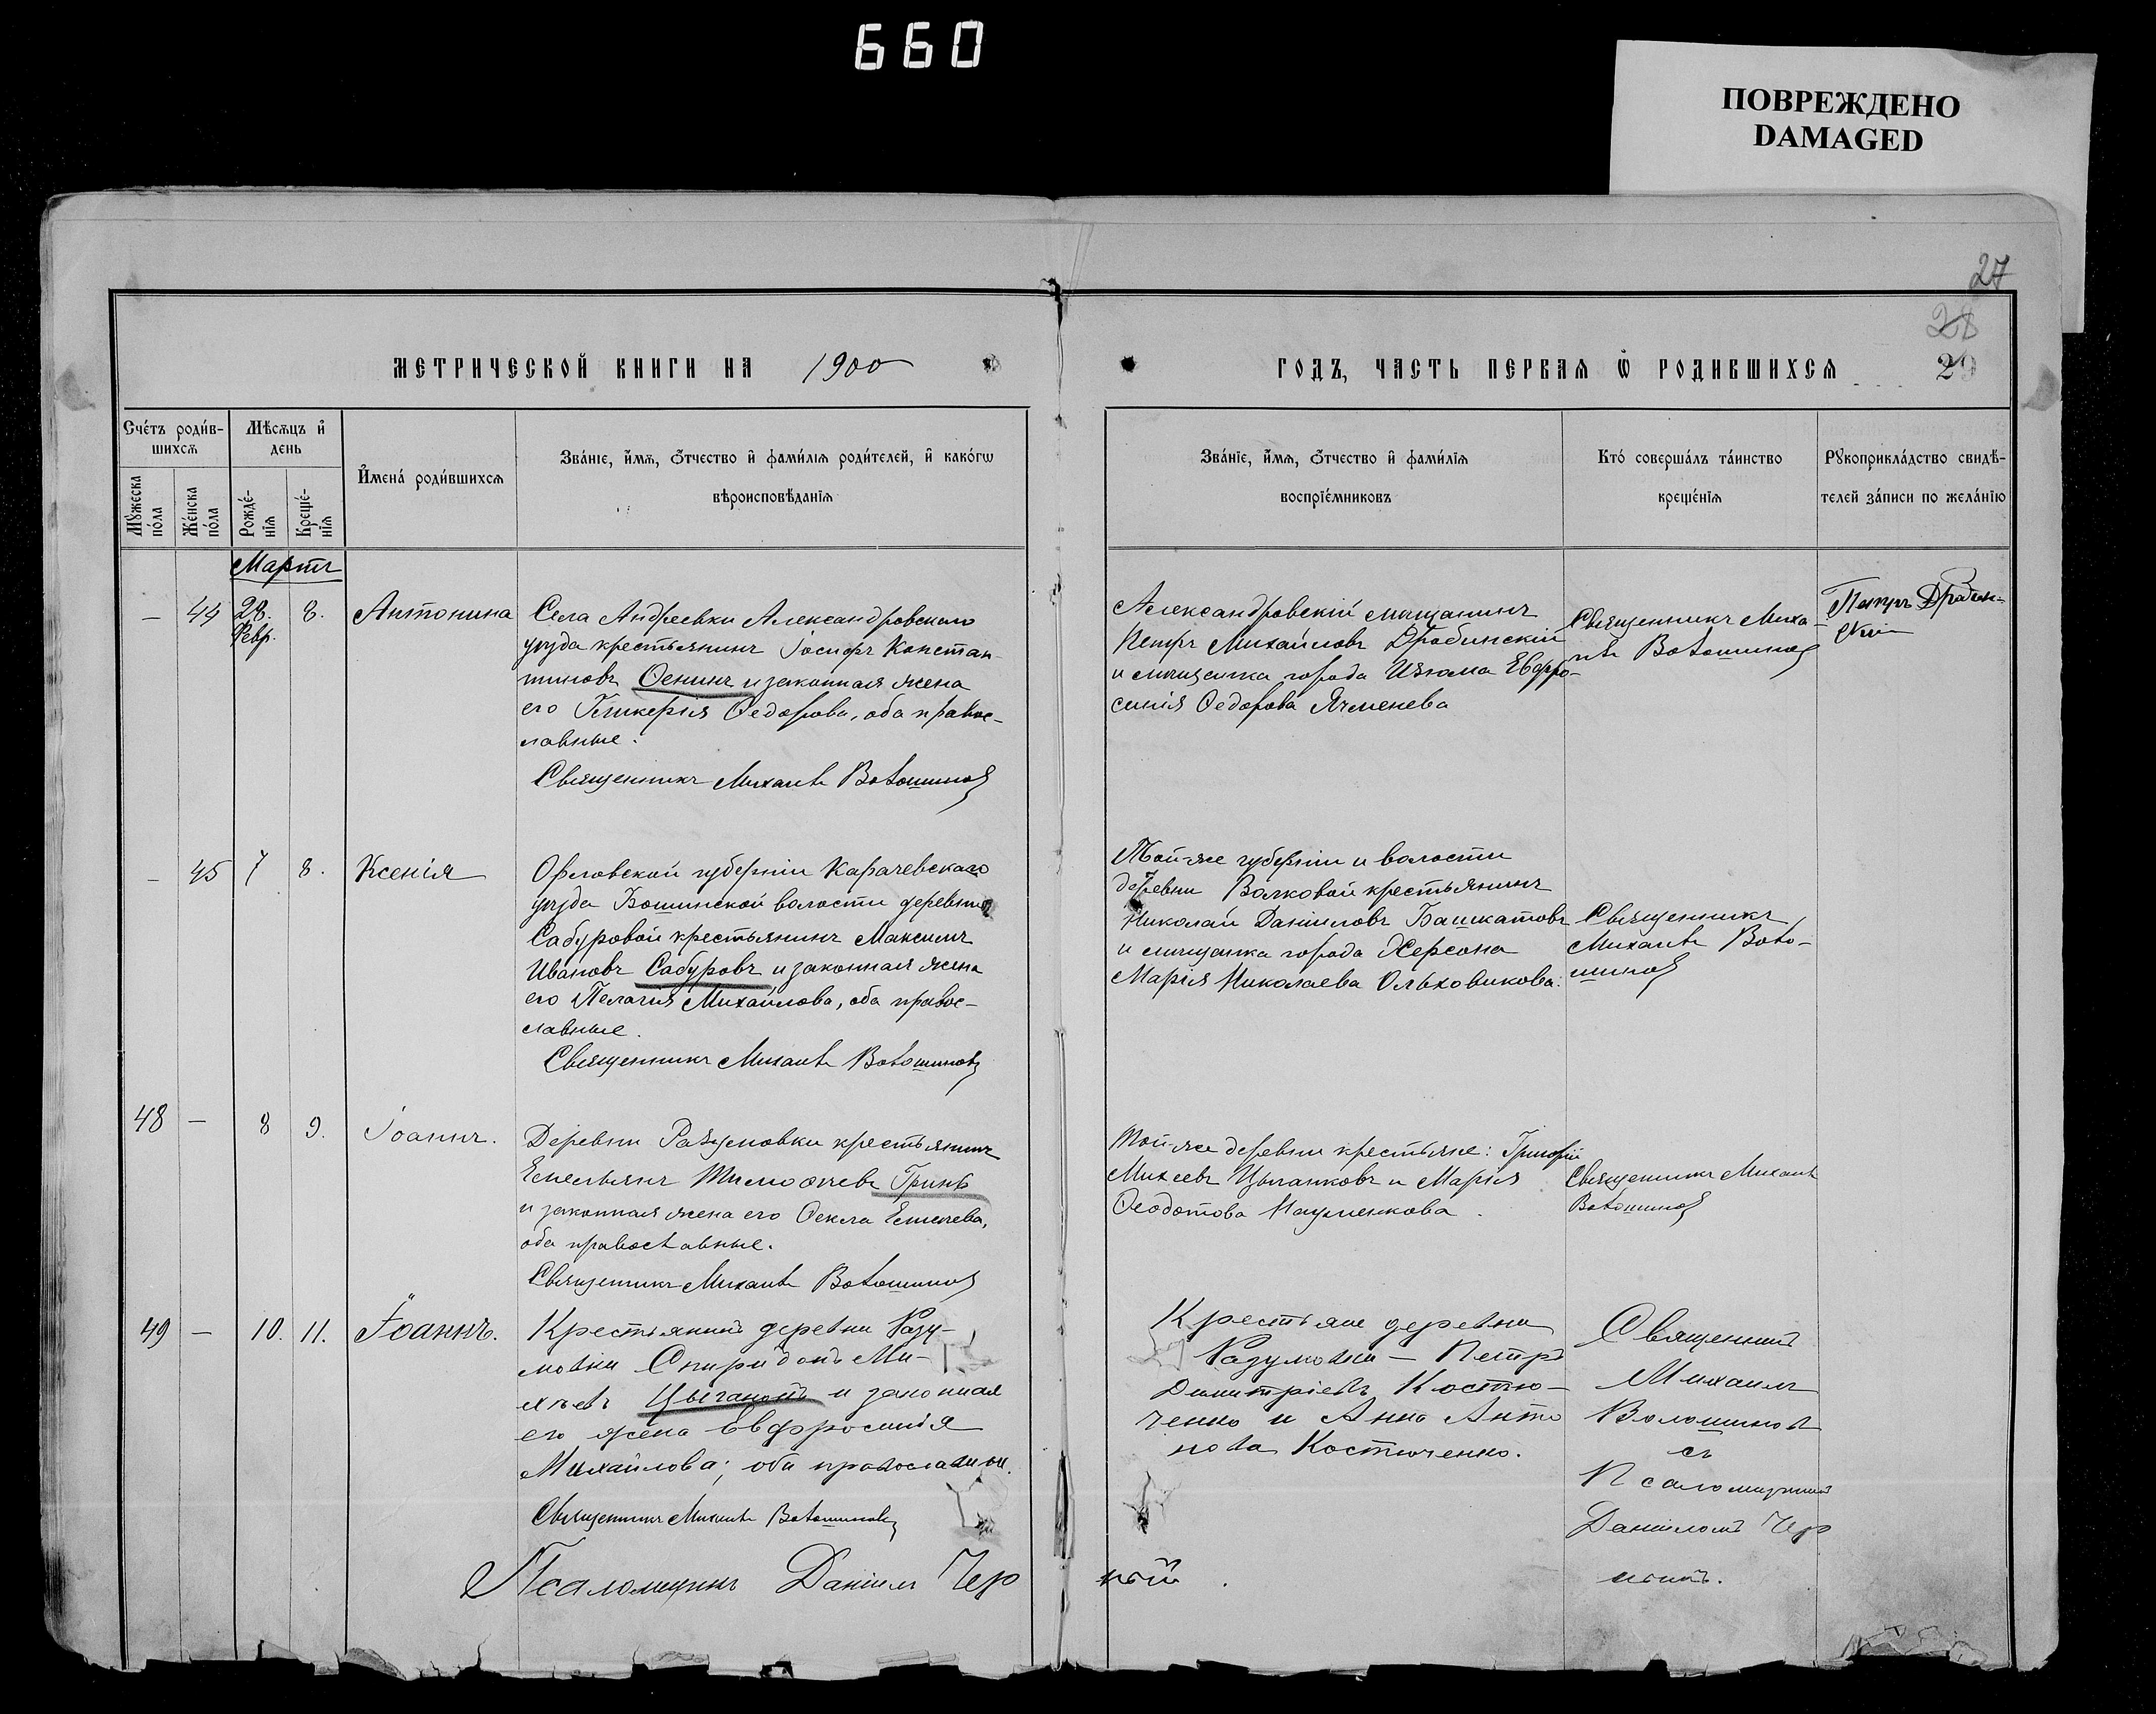 660
ПОВРЕЖДЕНО
DAMAGED
27
28
29
МЕТРИЧЕСКОЙ КНИГИ НА 1900
ГОДЪ, ЧАСТЬ ПЕРВАЯ Ѡ РОДИВШИХСЯ
Сче́тъ роди́в-
шихсѧ
Мѣсѧцъ и҆
день
Мꙋ́жеска
по́ла
Же́нска
по́ла
Рожде́-
нїѧ
Креще́-
нїѧ
И҆мена̀ роди́вшихсѧ
Зва́нїе, и҆́мѧ, ѻ҆́тчество и҆ фами́лїѧ роди́телей, и҆ како́гѡ
вѣроисповѣ́данїѧ
Зва́нїе, и҆́мѧ, ѻ҆́тчество и҆ фами́лїѧ
воспрїе́мниковъ
Кто̀ соверша́лъ та́инство
креще́нїѧ
Рꙋкоприкла́дство свидѣ́-
телей за́писи по жела́нїю
Мартъ
— 44 28. 8. Антонина
Февр.
Села Андреевки Александровскаго
уѣзда крестьянинъ Іосифъ Констан-
тиновъ Ѳенинъ и законная жена
его Гликерія Ѳедорова, оба право-
славные.
Священникъ Михаилъ Волошиновъ
Александровскій мѣщанинъ
Петръ Михайловъ Дробинскій
и мѣщанка города Изюма Евфро-
синія Ѳедорова Ячменева
Священникъ Миха-
илъ Волошиновъ
Петръ Дробин-
скій
— 45 7 8. Ксенія
Орловской губерніи Карачевскаго
уѣзда Бошинской волости деревни
Сабуровой крестьянинъ Максимъ
Ивановъ Сабуровъ и законная жена
его Пелагія Михайлова, оба право-
славные.
Священникъ Михаилъ Волошиновъ
Той-же губерніи и волости
деревни Волковой крестьянинъ
Николай Даніиловъ Башкатовъ
и мѣщанка города Херсона
Марія Николаева Ольховикова.
Священникъ
Михаилъ Воло-
шиновъ
48 — 8 9. Іоаннъ.
Деревни Разумовки крестьянинъ
Емельянъ Тимоѳеевъ Гринь
и законная жена его Ѳекла Евсеева,
оба православные.
Священникъ Михаилъ Волошиновъ
Той-же деревни крестьяне: Григорій
Михеевъ Цыганковъ и Марія
Ѳеодотова Науменкова.
Священникъ Михаилъ
Волошиновъ
49 — 10. 11. Іоаннъ.
Крестьянинъ деревни Разу-
мовки Спиридонъ Ми-
хѣевъ Цыганокъ и законная
его жена Евфросинія
Михайлова; оба православны.
Священникъ Михаилъ Волошиновъ
Крестьяне деревни
Разумовки — Петръ
Димитріевъ Костю-
ченко и Анна Анто
нова Костюченко.
Священникъ
Михаилъ
Волошиновъ
съ
Псаломщикомъ
Даніиломъ Чер
нымъ.
Псаломщикъ Даніилъ Чер
ный.